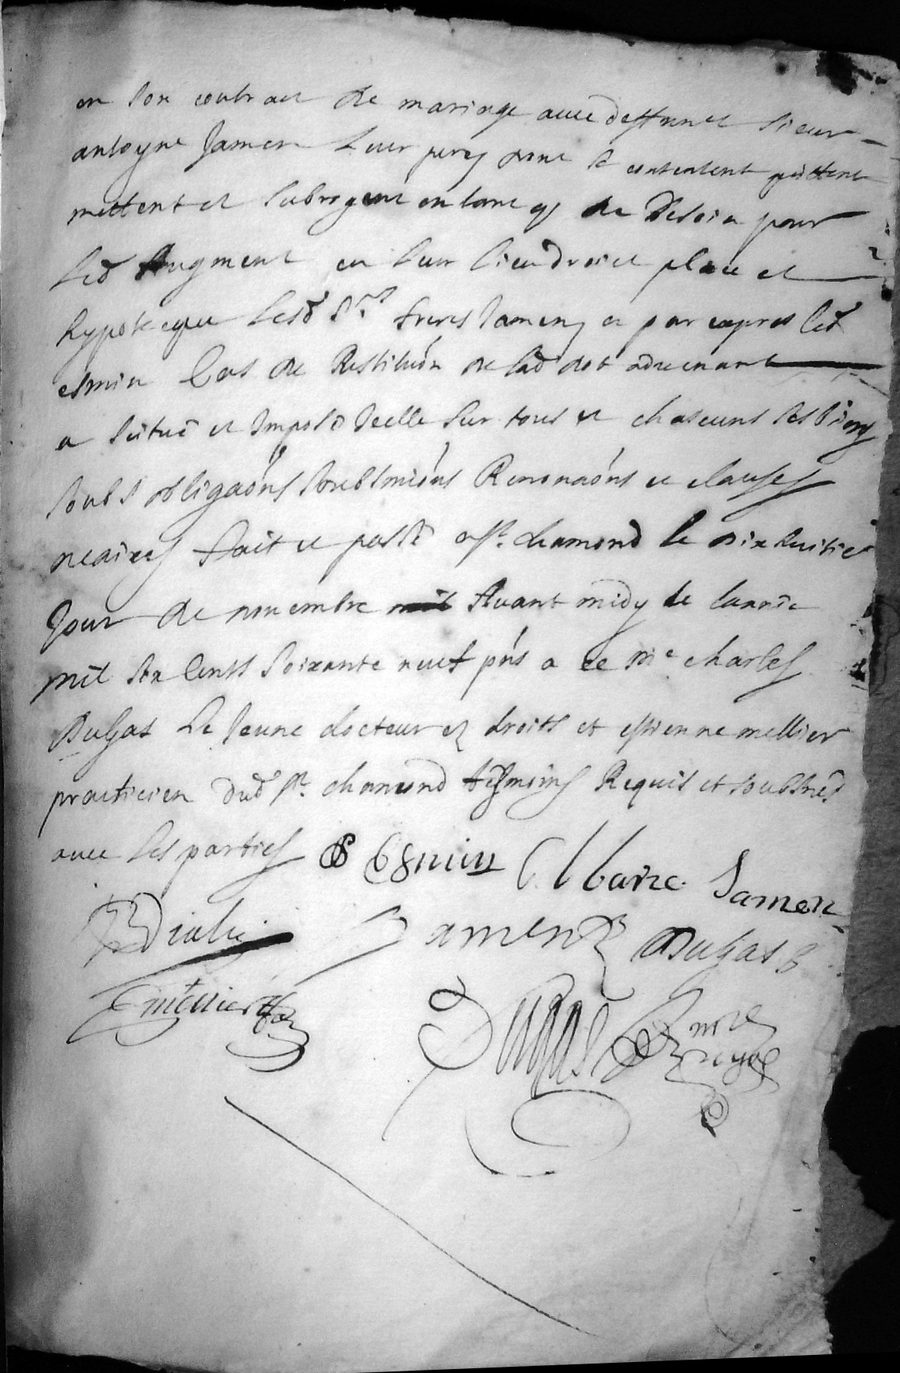 en son contract de mariage avec deffunct sieur
antoyne Jamen leur pere dont se contentent quittent
mettent et subrogent en tant q de besoin pour
led Augment en leur lieu droict place et
hypotecque lesd Srs freres Jamen et par expres led
esmin cas de Restituón de lad dot advenant
a scitué et Imposé Icelle sur tous et chascuns ses biens
soubs obligaóns soubsmións Renonaóns et clauses
nécaires fait et passé a St. chamond le dix huitie
Jour de novembre Avant midy de lannée
mil six cents soixante neuf pns a ce Me charles
Dugas le Jeune docteur ez droits et estienne mellier
practicien dud St. chamond tesmoins Requis et soubsnes
avec les parties Esmin Jamen
Jamen Dugas
E mellier
Dugas nore
royal